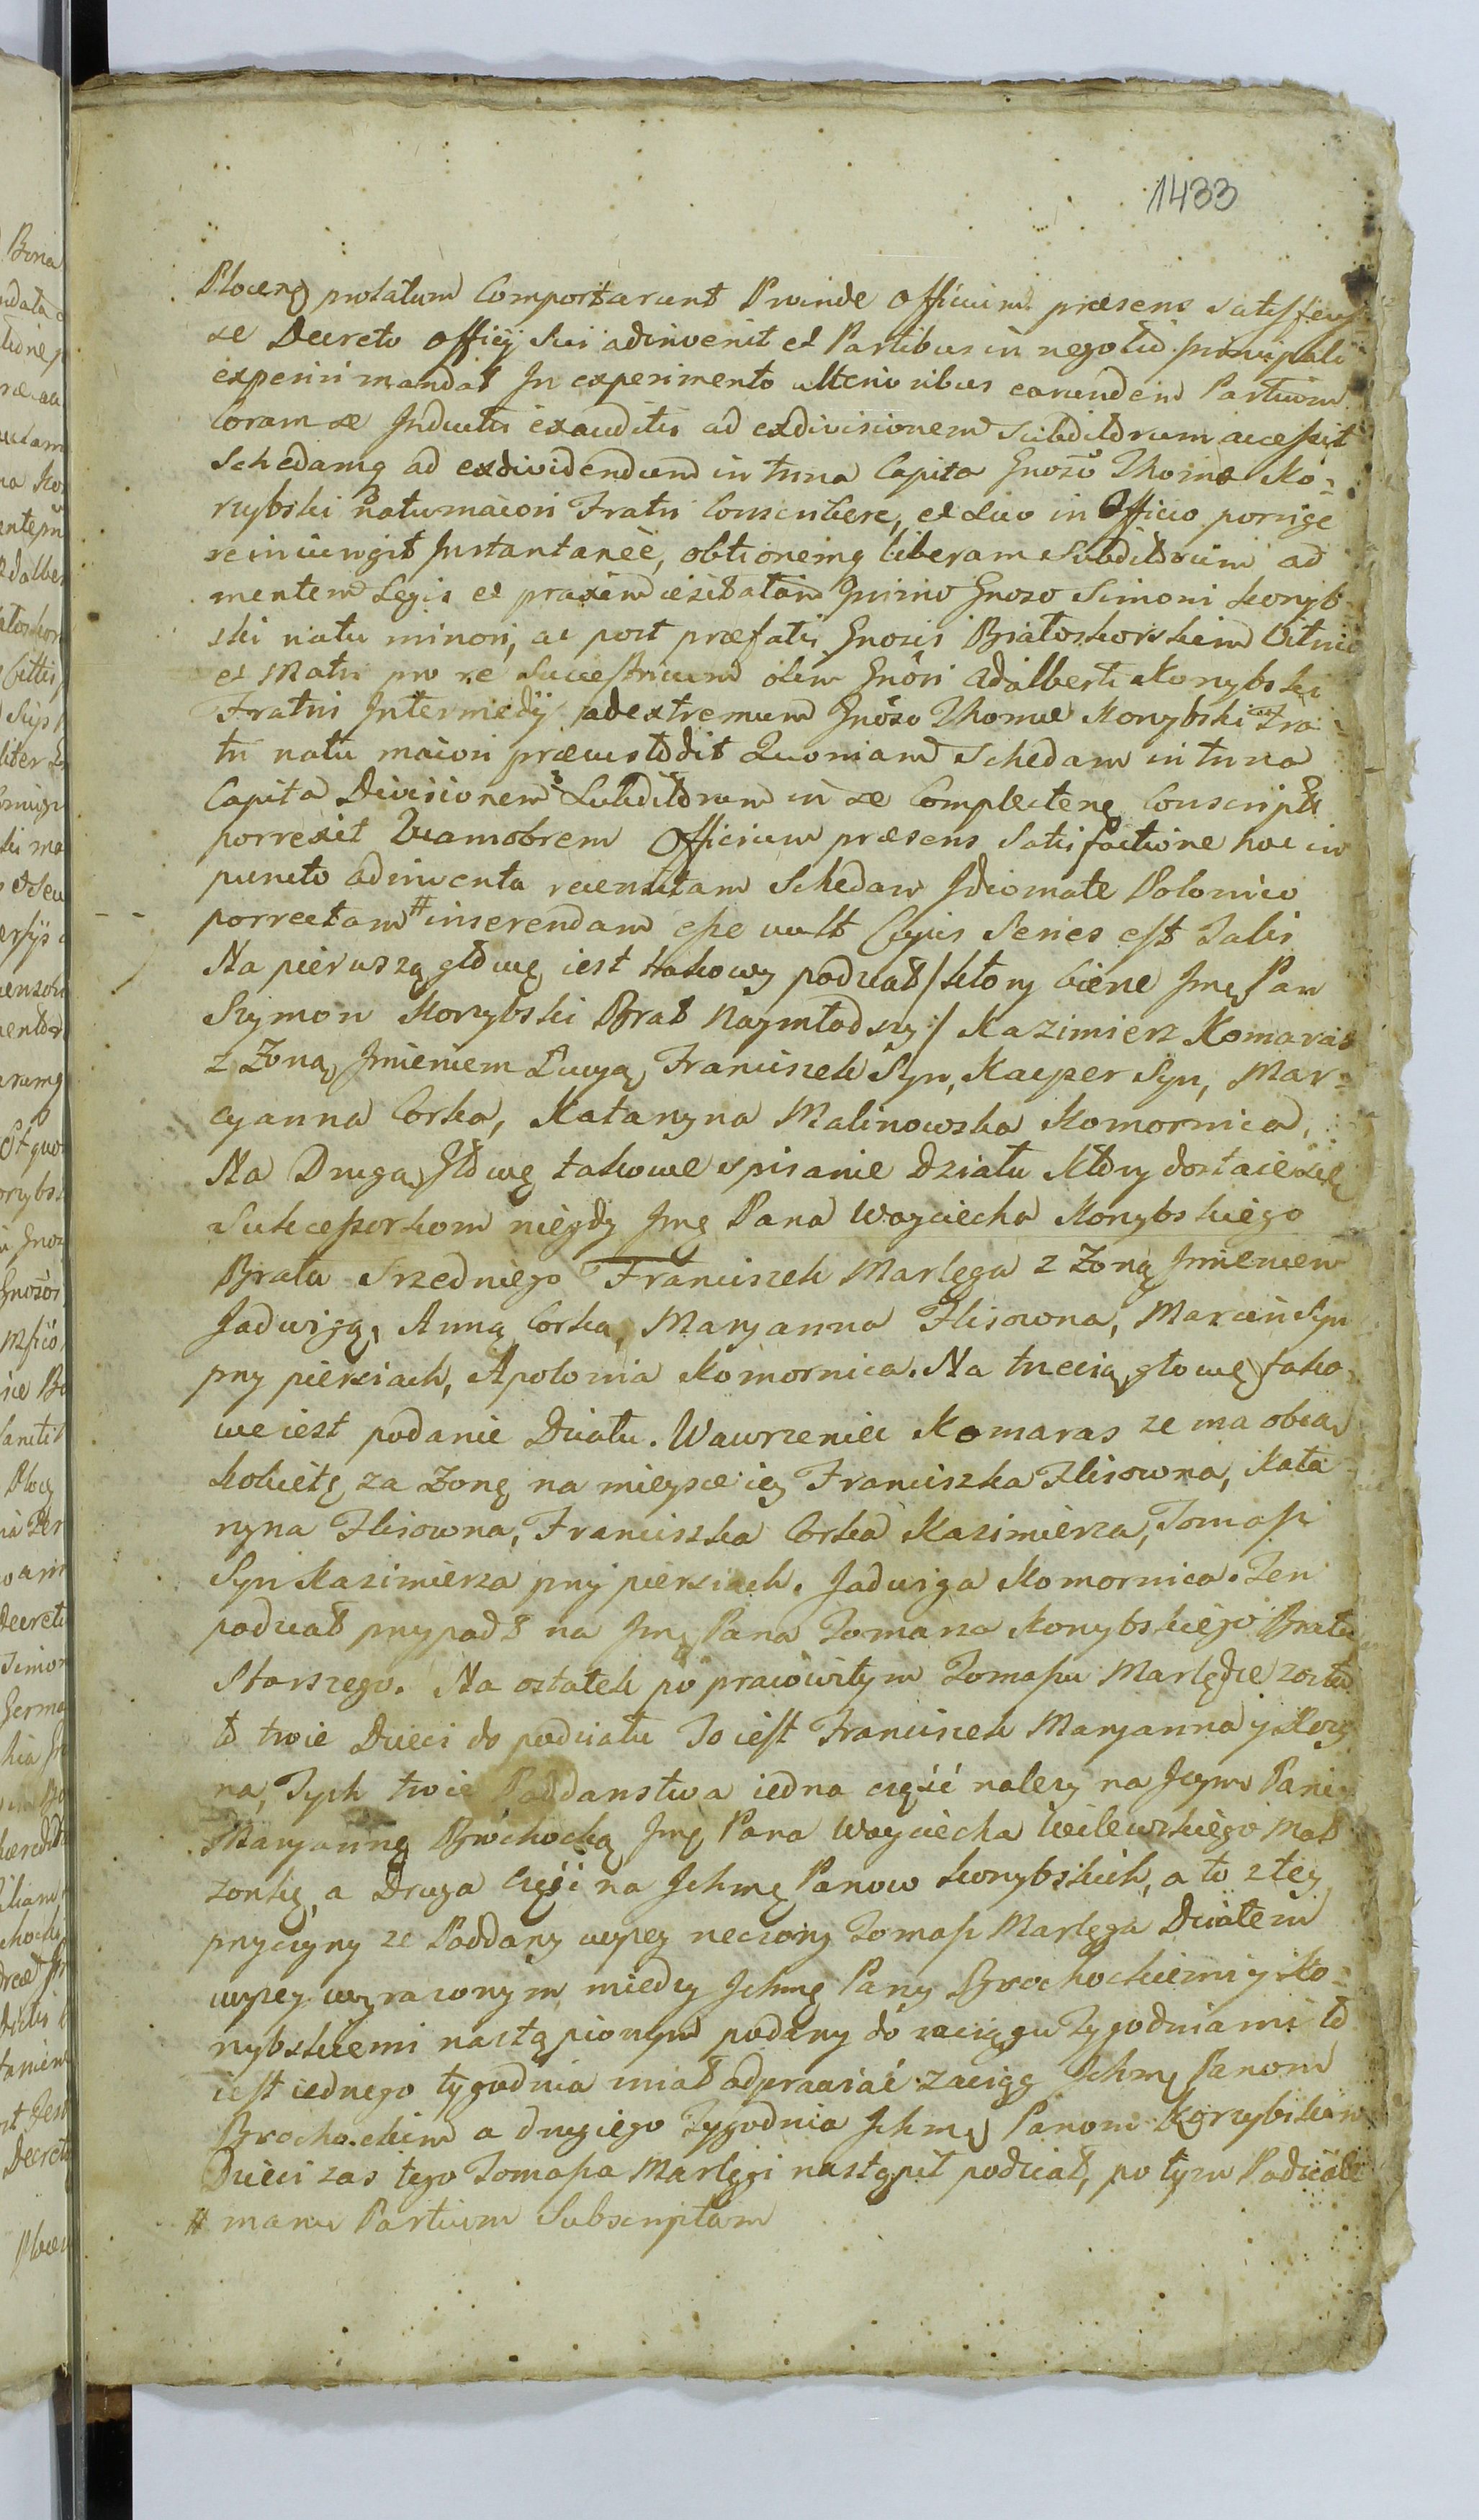 1433
Plocens prolatum Comportarunt Proinde Officium præsens satisfecis
se Decreto Officÿ Sui adinvenit et Partibus in negotio principali
experiri mandat In experimento ulterioribus earundem Partium
Coram se Inductis exauditis ad exdivisionem Subditorum accessit
Schedamq ad exdividendum in trina Capita Gnoso Thomæ Ko=
rzybski natumaiori Fratri Conscribere, et suo in Officio porrige
re iniungit Instantanèe, obtionemq liberam Subditorum ad
mentem Legis et praxim usitatam Primo Gnoso Simoni Korzyb
ski natu minori, ac post præfatis Gnosis Białoskorskim Vitrico
et Matri pro re Successorum olim Gnōsi Adalberti Korzybski
Fratris Intermedÿ ad extremum Gnōso Thomæ Korzybski Fra
tri natu maiori præcustodit Quoniam Schedam in trina
Capita Divisionem Subditorum in se Complectens Conscripta
porrexit Quamobrem Officium præsens Satisfactione hoc in
puncto adinventa recensitam Schedam Idiomate Polonico
porrectam # inserendam esse vult Cujus Series est Talis
Na pierwszą głowę iest takowy podział / ktory bierze Jmę Pan
Szymon Korzybski Brat Naymłodszy / Kazimierz Komaras
z Zoną Jmieniem Lucyą, Franciszek Syn, Kacper Syn, Mar=
cyanna Corka, Katarzyna Malinowska Komornica,
Na Drugą Głowę takowe spisanie Działu Ktory dostaie się
Sukcessorkom niegdy Jmę Pana Woyciecha Korzybskiego
Brata Srzedniego Franciszek Marlęga z Zoną Jmieniem
Jadwigą, Anną Corką, Maryanna Flisowna, Marcin Syn
przy piersiach, Apolonia Komornica. Na trzecią głowę tako=
we iest podanie Działu. Wawrzeniec Komaras ze ma obcą
kobietę za Zonę na mieysce iey Franciszka Flisowna, Kata
rzyna Flisowna, Franciszka Corka Kazimierza, Tomasz
Syn Kazimierza przy piersiach. Jadwiga Komornica. Ten
podział przypadł na Jmę Pana Tomasza Korzybskiego Brata
Starszego. Na ostatek po pracowitym Tomaszu Marlędze zosta
ło troie Dzieci do podziału To iest Franciszek Maryanna y
na, Tych troie Poddanstwa iedna część nalezy na Jeymę Panią
Maryannę Brochocką Jmę Pana Woyciecha Wilewskiego Mał
zonkę, a Druga Częsć na Ichmę Panow Korzybskich, a to z tey
przyczyny ze Poddany wyzey rzeczony Tomasz Marlęga Działem
wyzey wyrazonym miedzy Ichmę Pany Brochockiemi y Ko=
rzybskiemi nastąpionym podany do zaciągu Tygodniami to
iest iednego tygodnia miał odprawiać zaciąg Ichmę Panom
Brochockim a drugiego Tygodnia Ichmę Panom Korzybskim
Dzieci zas tego Tomasza Marlęgi nastąpił podział, po tym Podziale
# manu Partium Subscriptam